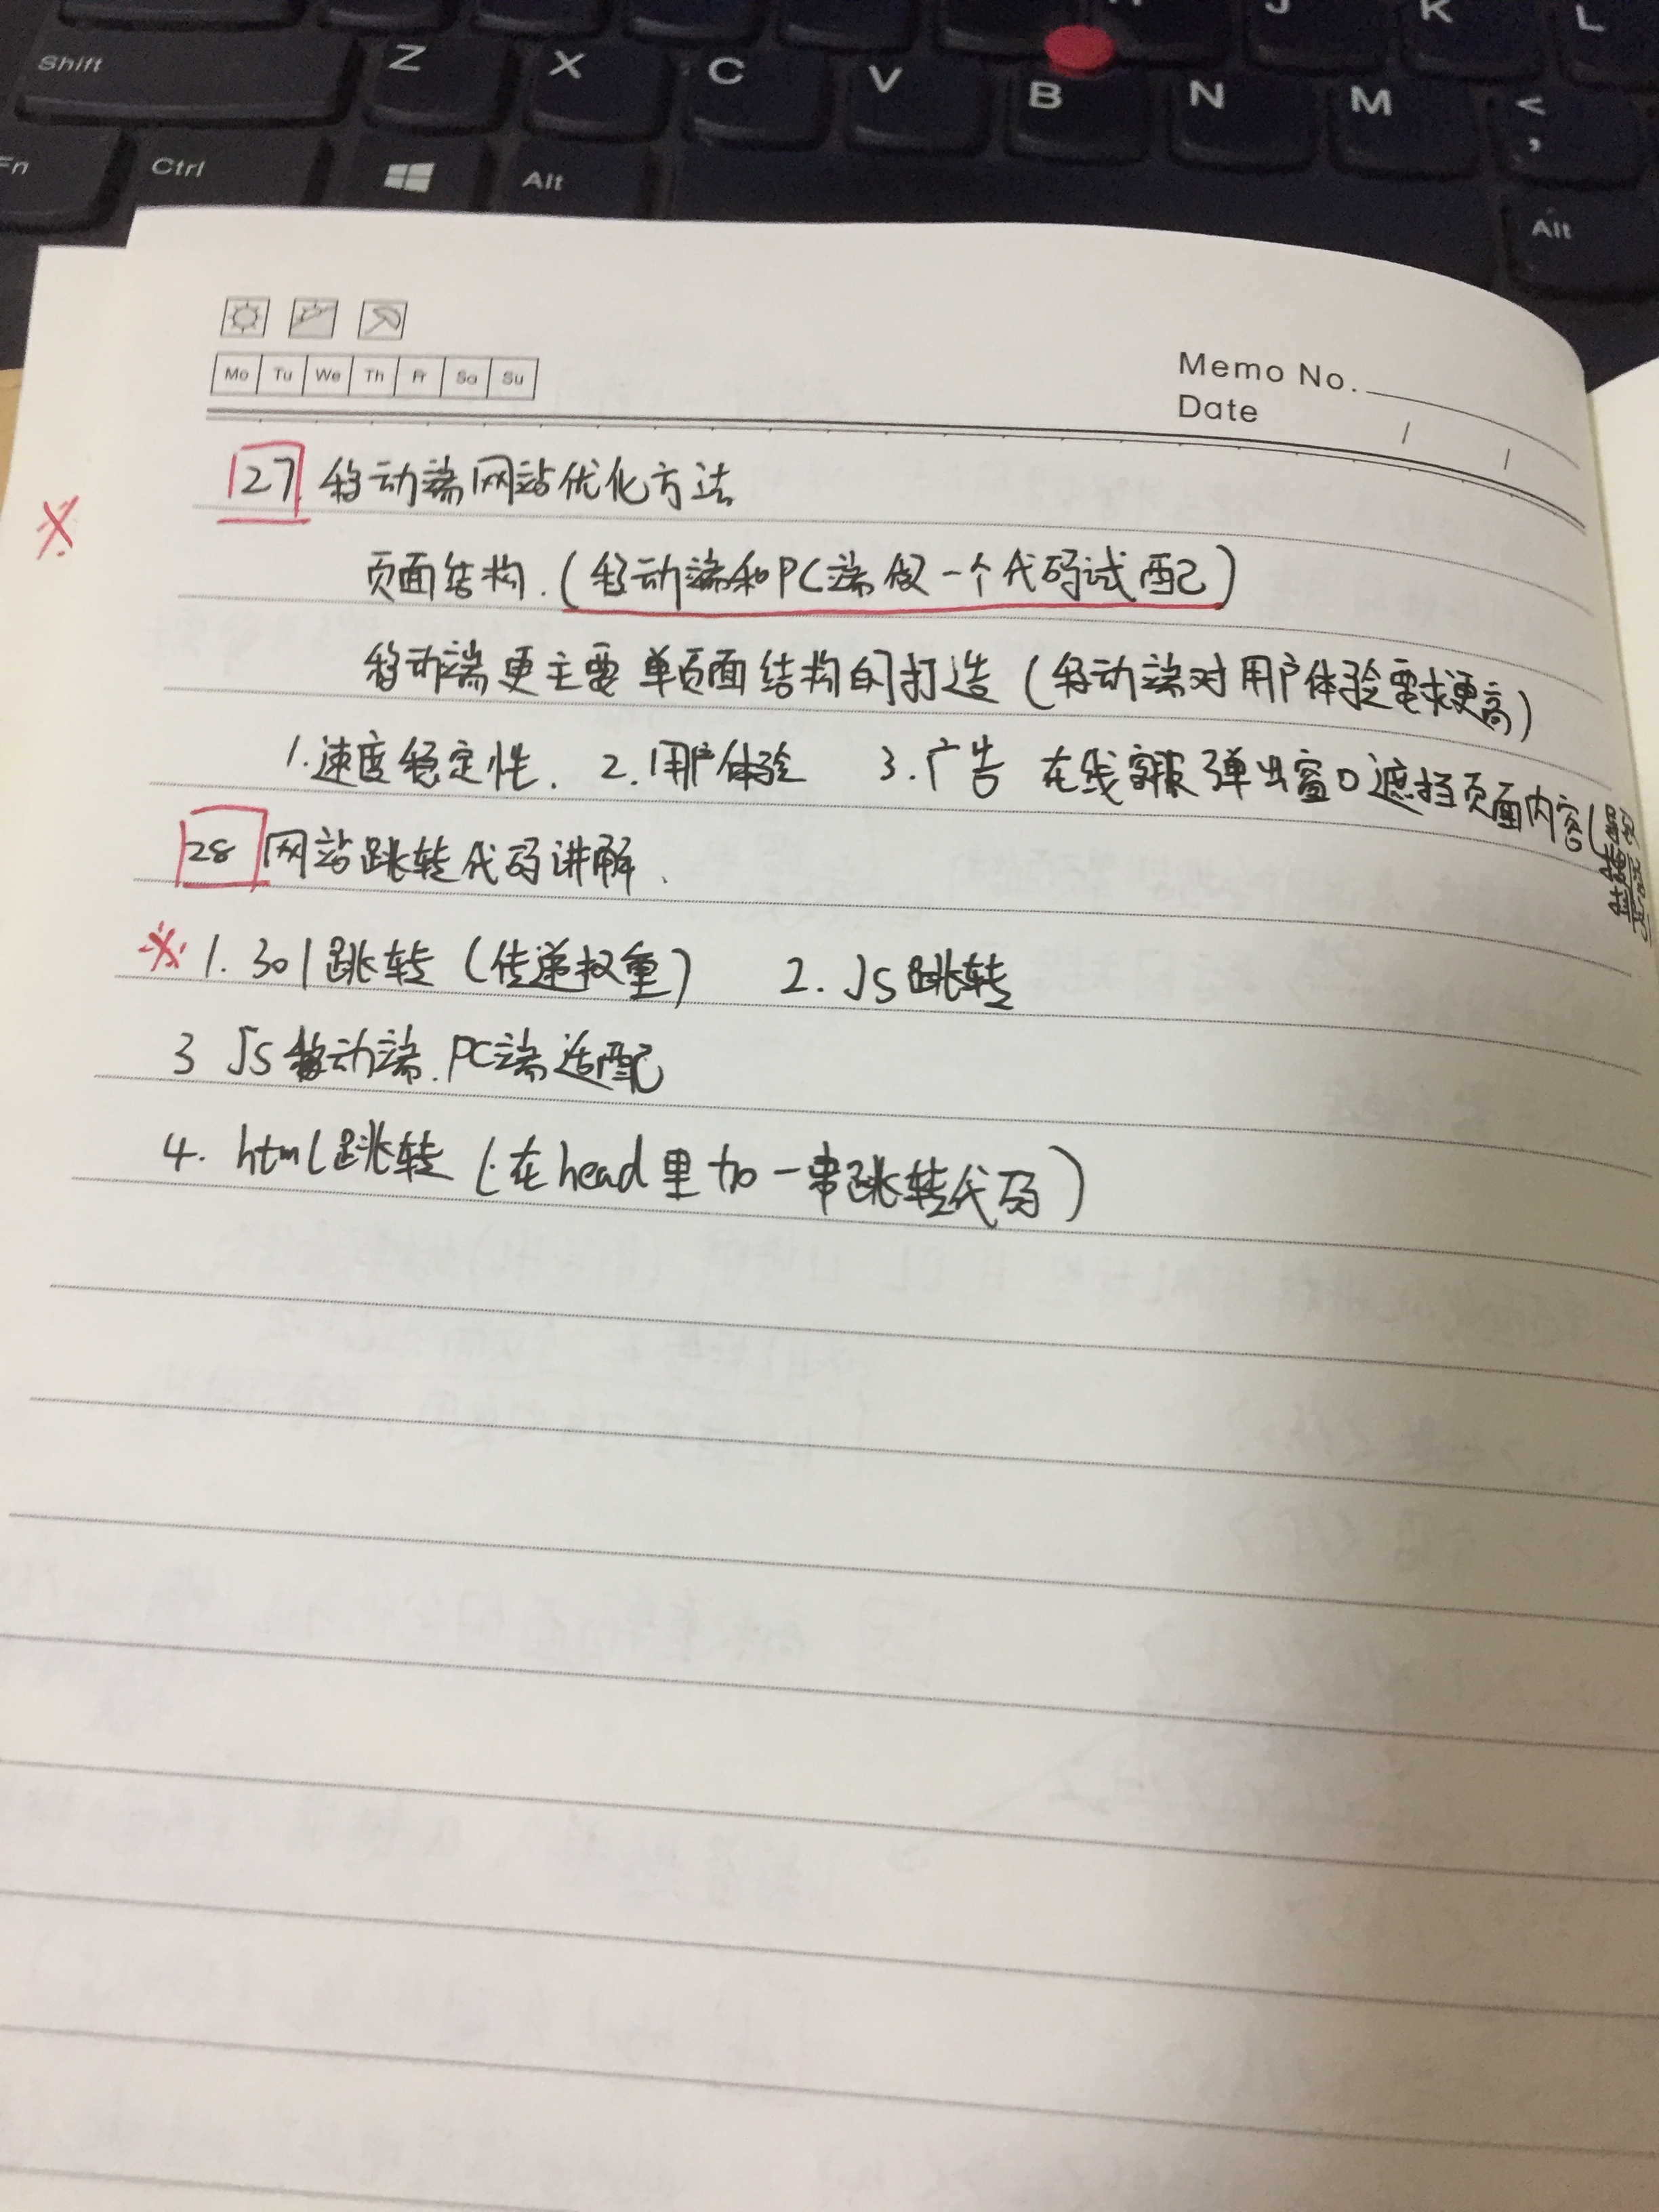 J K L
Shift Z X C V B N M < ,
Fn Ctrl Alt Alt
Memo No.
Mo Tu We Th Fr Sa Su
Date / /
27 移动端网站优化方法
页面结构.(移动端和PC端做一个代码试配)
移动端更主要单页面结构的打造(移动端对用户体验需求更高)
1.速度稳定性. 2.用户体验 3.广告 在线客服弹出窗口遮挡页面内容(
28 网站跳转代码讲解.
※ 1. 301跳转(传递权重) 2. JS跳转
3 JS移动端.PC端适配
4. html跳转(在head里加一串跳转代码)